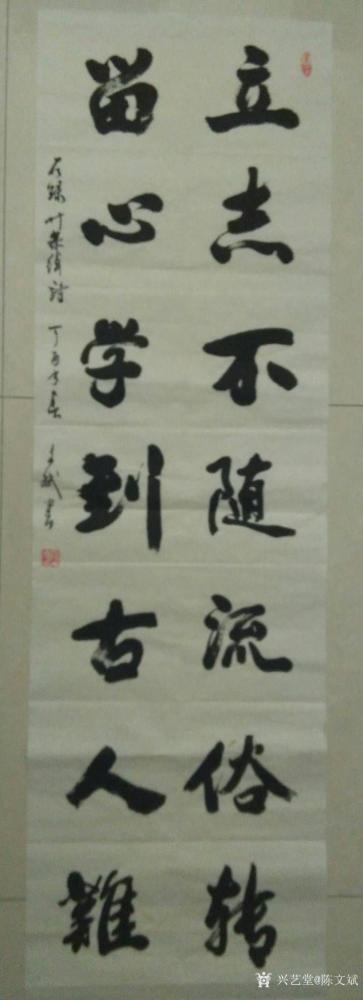 立志不随流俗转
留心学到古人難
右録叶燮绯诗 丁酉年春 文斌書
兴艺堂@陈文斌